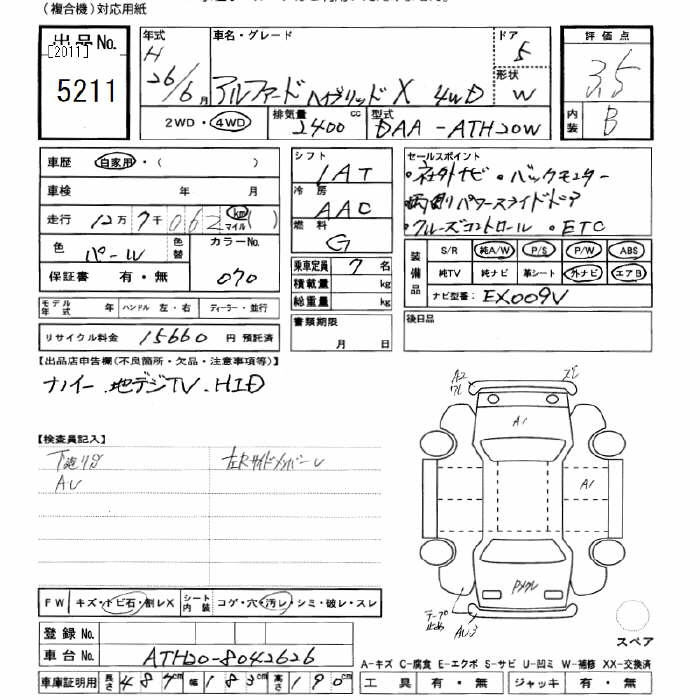 (複合機)対応用紙
出品No.
[2011]
5211
年式 H 26/6月
車名・グレード
アルファード ハイブリッド X 4WD
ドア 5
形状 W
2WD・4WD
排気量 2400 cc
型式 DAA-ATH20W
評価点
3.5
内装 B
車歴 自家用・( )
車検 年 月
走行 12万7千062 km マイル ( )
色 パール 色替 カラーNo. 070
保証書 有・無
モデル年式 年 ハンドル 左・右 ディーラー・並行
リサイクル料金 15660 円 預託済
シフト IAT
冷房 AAC
燃料 G
乗車定員 7 名
積載量 kg
総重量 kg
書類期限
月 日
セールスポイント
・社外ナビ ・バックモニター
・両側パワースライドドア
・クルーズコントロール ・ETC
装備品
S/R 純A/W P/S P/W ABS
純TV 純ナビ 革シート 外ナビ エアB
ナビ型番: EX009V
後日品
【出品店申告欄(不良箇所・欠品・注意事項等)】
ナノイー .地デジTV .HID
【検査員記入】
下廻りサ 左Rサイドメンバーレ
AU
A2 ワレ ズレ
A1
A1
Pメクレ
テープ止め
AU3
スペア
FW キズ・トビ石・割レX シート内装 コゲ・穴・汚レ・シミ・破レ・スレ
登録No.
車台No. ATH20-8042626
車庫証明用 長さ 484cm 幅 183cm 高さ 190cm
A-キズ C-腐食 E-エクボ S-サビ U-凹ミ W-補修 XX-交換済
工具 有・無 ジャッキ 有・無